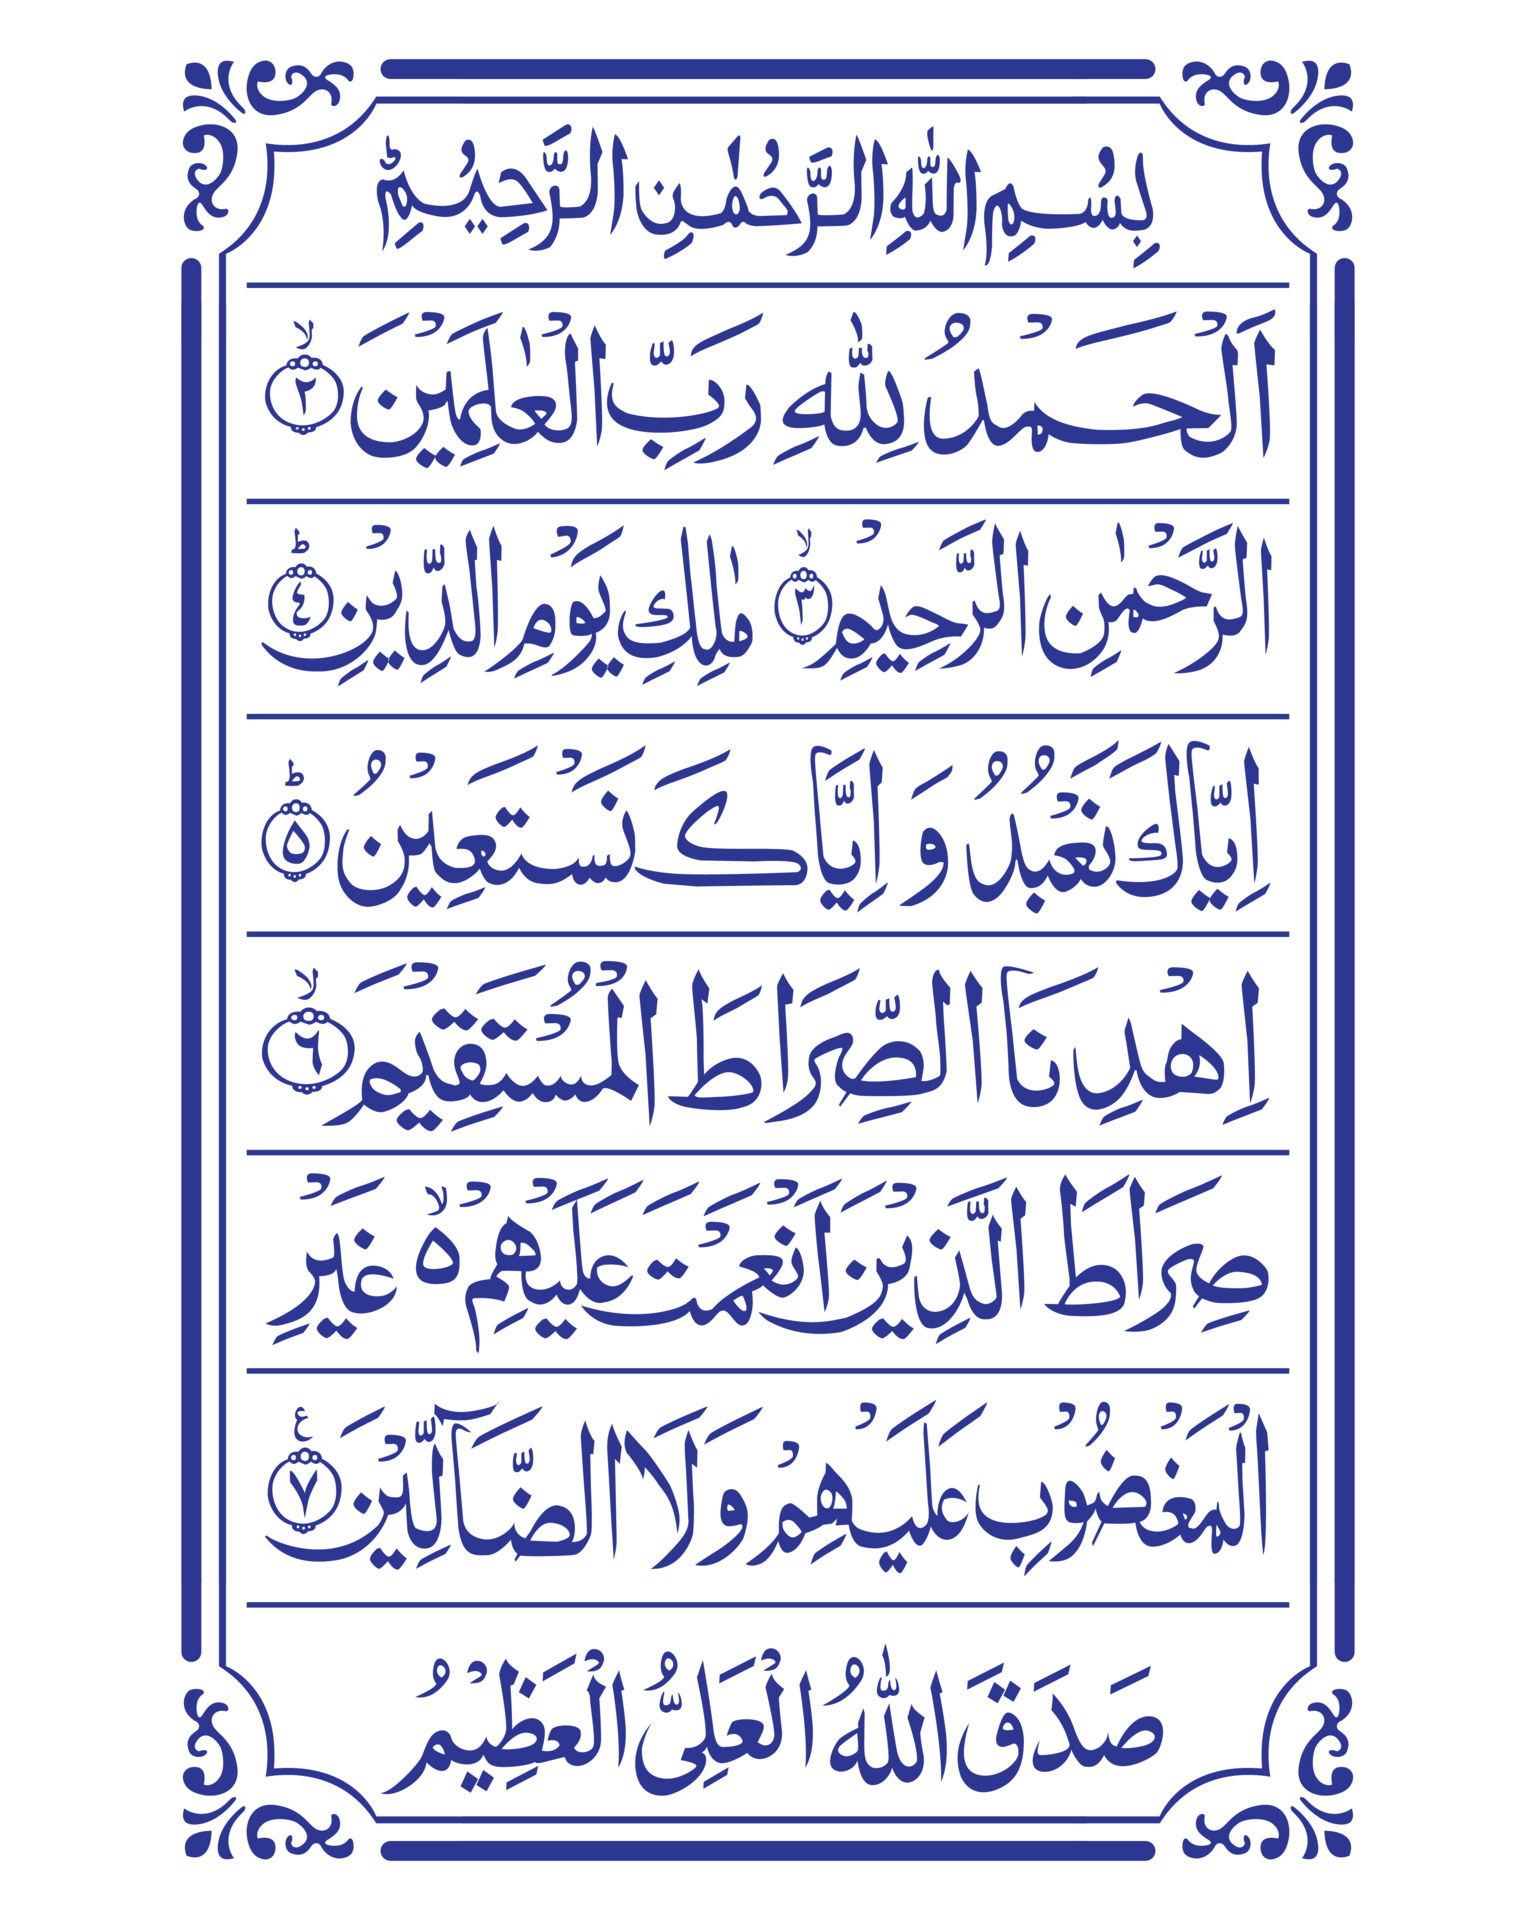 بِسْمِ اللّٰهِ الرَّحْمٰنِ الرَّحِيْمِؕ
اَلْحَمْدُ لِلّٰهِ رَبِّ الْعٰلَمِيْنَۙ ۝٢
الرَّحْمٰنِ الرَّحِيْمِۙ ۝٣ مٰلِكِ يَوْمِ الدِّيْنِؕ ۝٤
اِيَّاكَ نَعْبُدُ وَ اِيَّاكَ نَسْتَعِيْنُؕ ۝٥
اِهْدِنَا الصِّرَاطَ الْمُسْتَقِيْمَۙ ۝٦
صِرَاطَ الَّذِيْنَ اَنْعَمْتَ عَلَيْهِمْ ۙ۬ە غَيْرِ
الْمَغْضُوْبِ عَلَيْهِمْ وَلَا الضَّآلِّيْنَ ۝٧ ع
صَدَقَ اللّٰهُ الْعَلِىُّ الْعَظِيْمُ